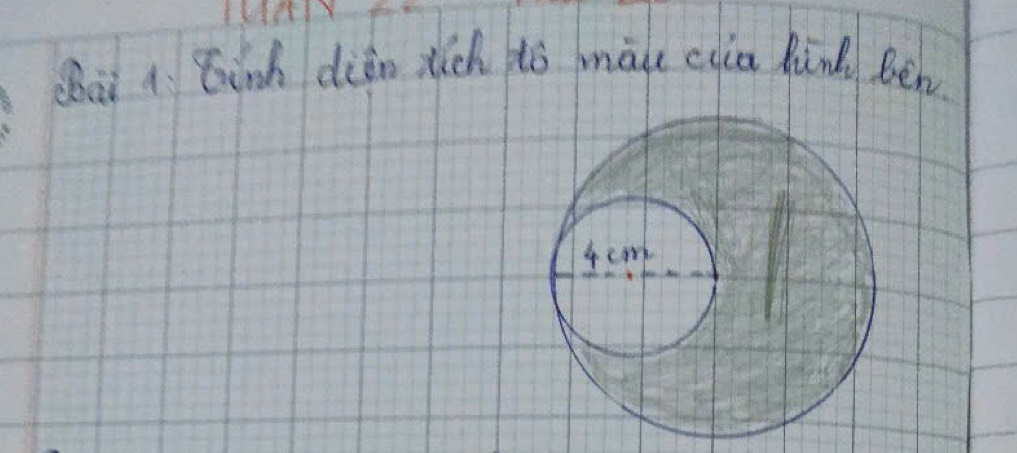 TUẦN 22
Bài 1: Tính diện tích tô màu của hình bên
4 cm